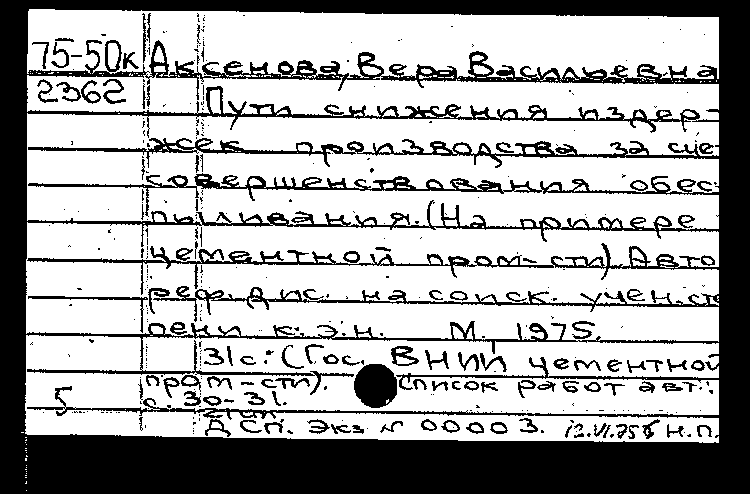 75-50к Аксенова, Вера Васильевна
2362 Пути снижения издер-
жек производства за сче
совершенствования обес-
пыливания. (На примере
цементной пром-сти) Авто
реф. дис. на соиск. учен. сте
пени к. э. н. М. 1975.
31с. (Гос. ВНИИ цементной
пром-сти). Список работ авт.:
5 с. 30-31.
ДСП. Экз № 00003. 12.VI.75г Н.П.